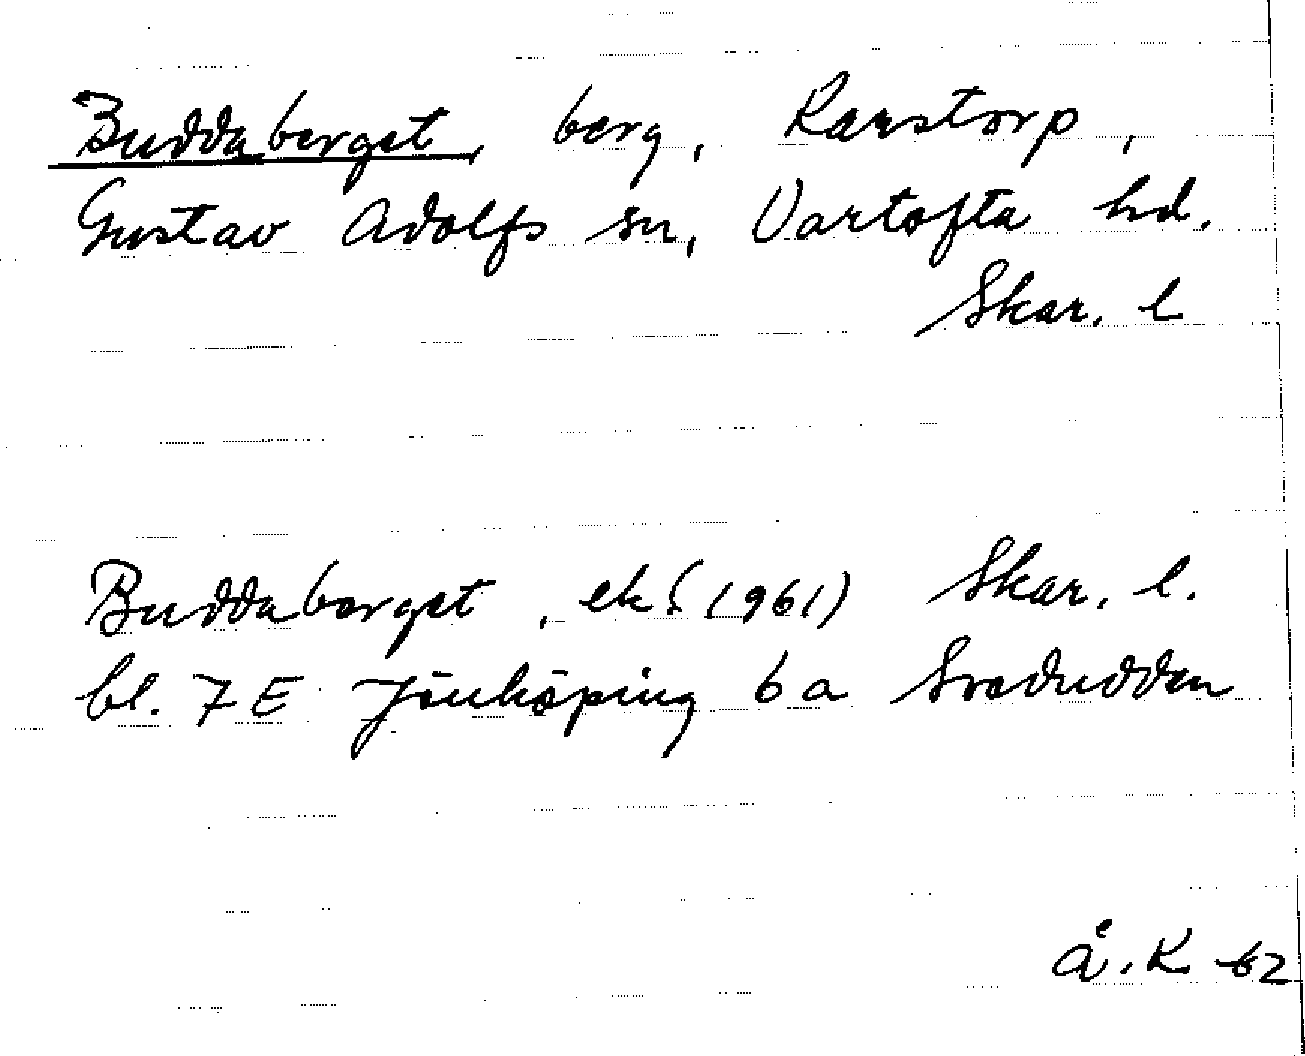 Buddaberget, berg, Ranstorp,
Gustav Adolfs sn, Vartofta hd.
Skar. l
Buddaberget, ek. (1961) Skar. l.
bl. 7 E Jönköping 6 a Svedudden
Å. K -62